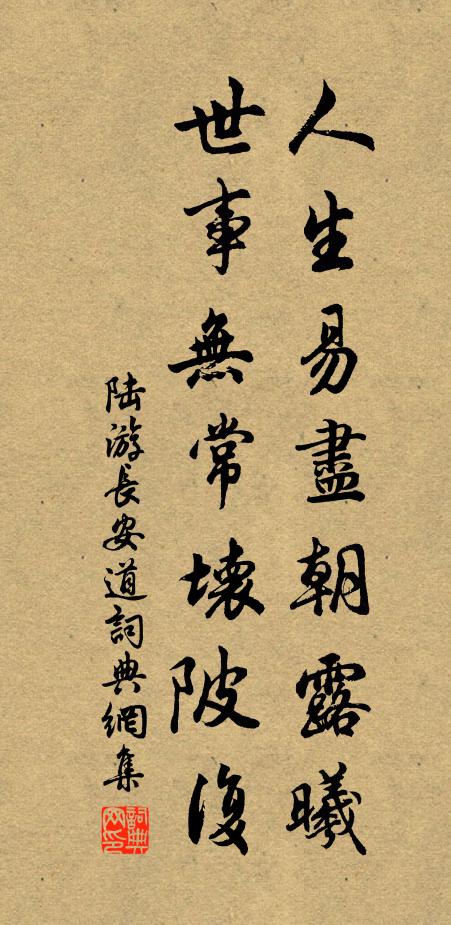 人生易盡朝露曦
世事無常壞陂復
陆游長安道詞典網集
詞典網印